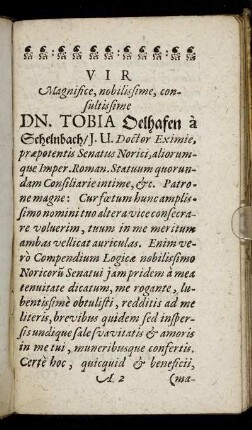 VIR
Magnifice, nobilissime, con-
sultissime
DN. TOBIA Oelhafen à
Schelnbach/ J. U. Doctor Eximie,
præpotentis Senatus Norici, aliorum-
que Imper. Roman. Statuum quorun-
dam Consiliarie intime, &c. Patro-
ne magne: Cur fœtum hunc amplis-
simo nomini tuo altera vice consecra-
re voluerim, tuum in me meritum
ambas vellicat auriculas. Enim ve-
rò Compendium Logicæ nobilissimo
Noricorũ Senatui jam pridem à mea
tenuitate dicatum, me rogante, lu-
bentissimè obtulisti, redditis ad me
literis, brevibus quidem sed insper-
sis undique sale svavitatis & amoris
in me tui, muneribusque confertis.
Certè hoc, quicquid & beneficii,
A 2 (ma-